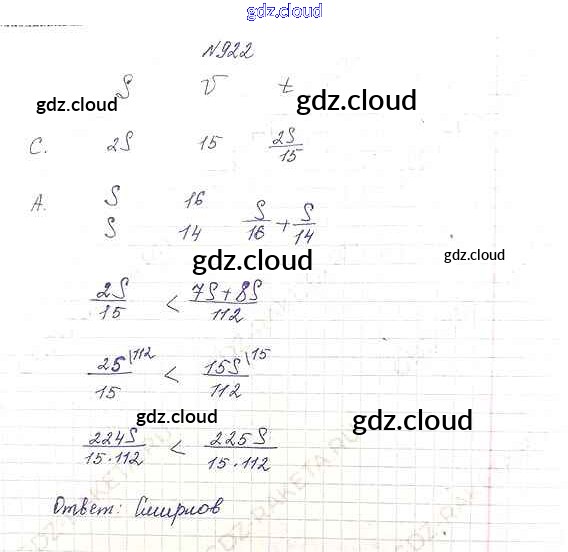 gdz.cloud
№922
S V t
gdz.cloud gdz.cloud
С. 2S 15 2S/15
А. S 16
S 14 S/16 + S/14
gdz.cloud gdz.cloud
2S/15 < 7S+8S/112
2S|112/15 < 15S|15/112
gdz.cloud gdz.cloud
224S/15·112 < 225S/15·112
Ответ: Смирнов